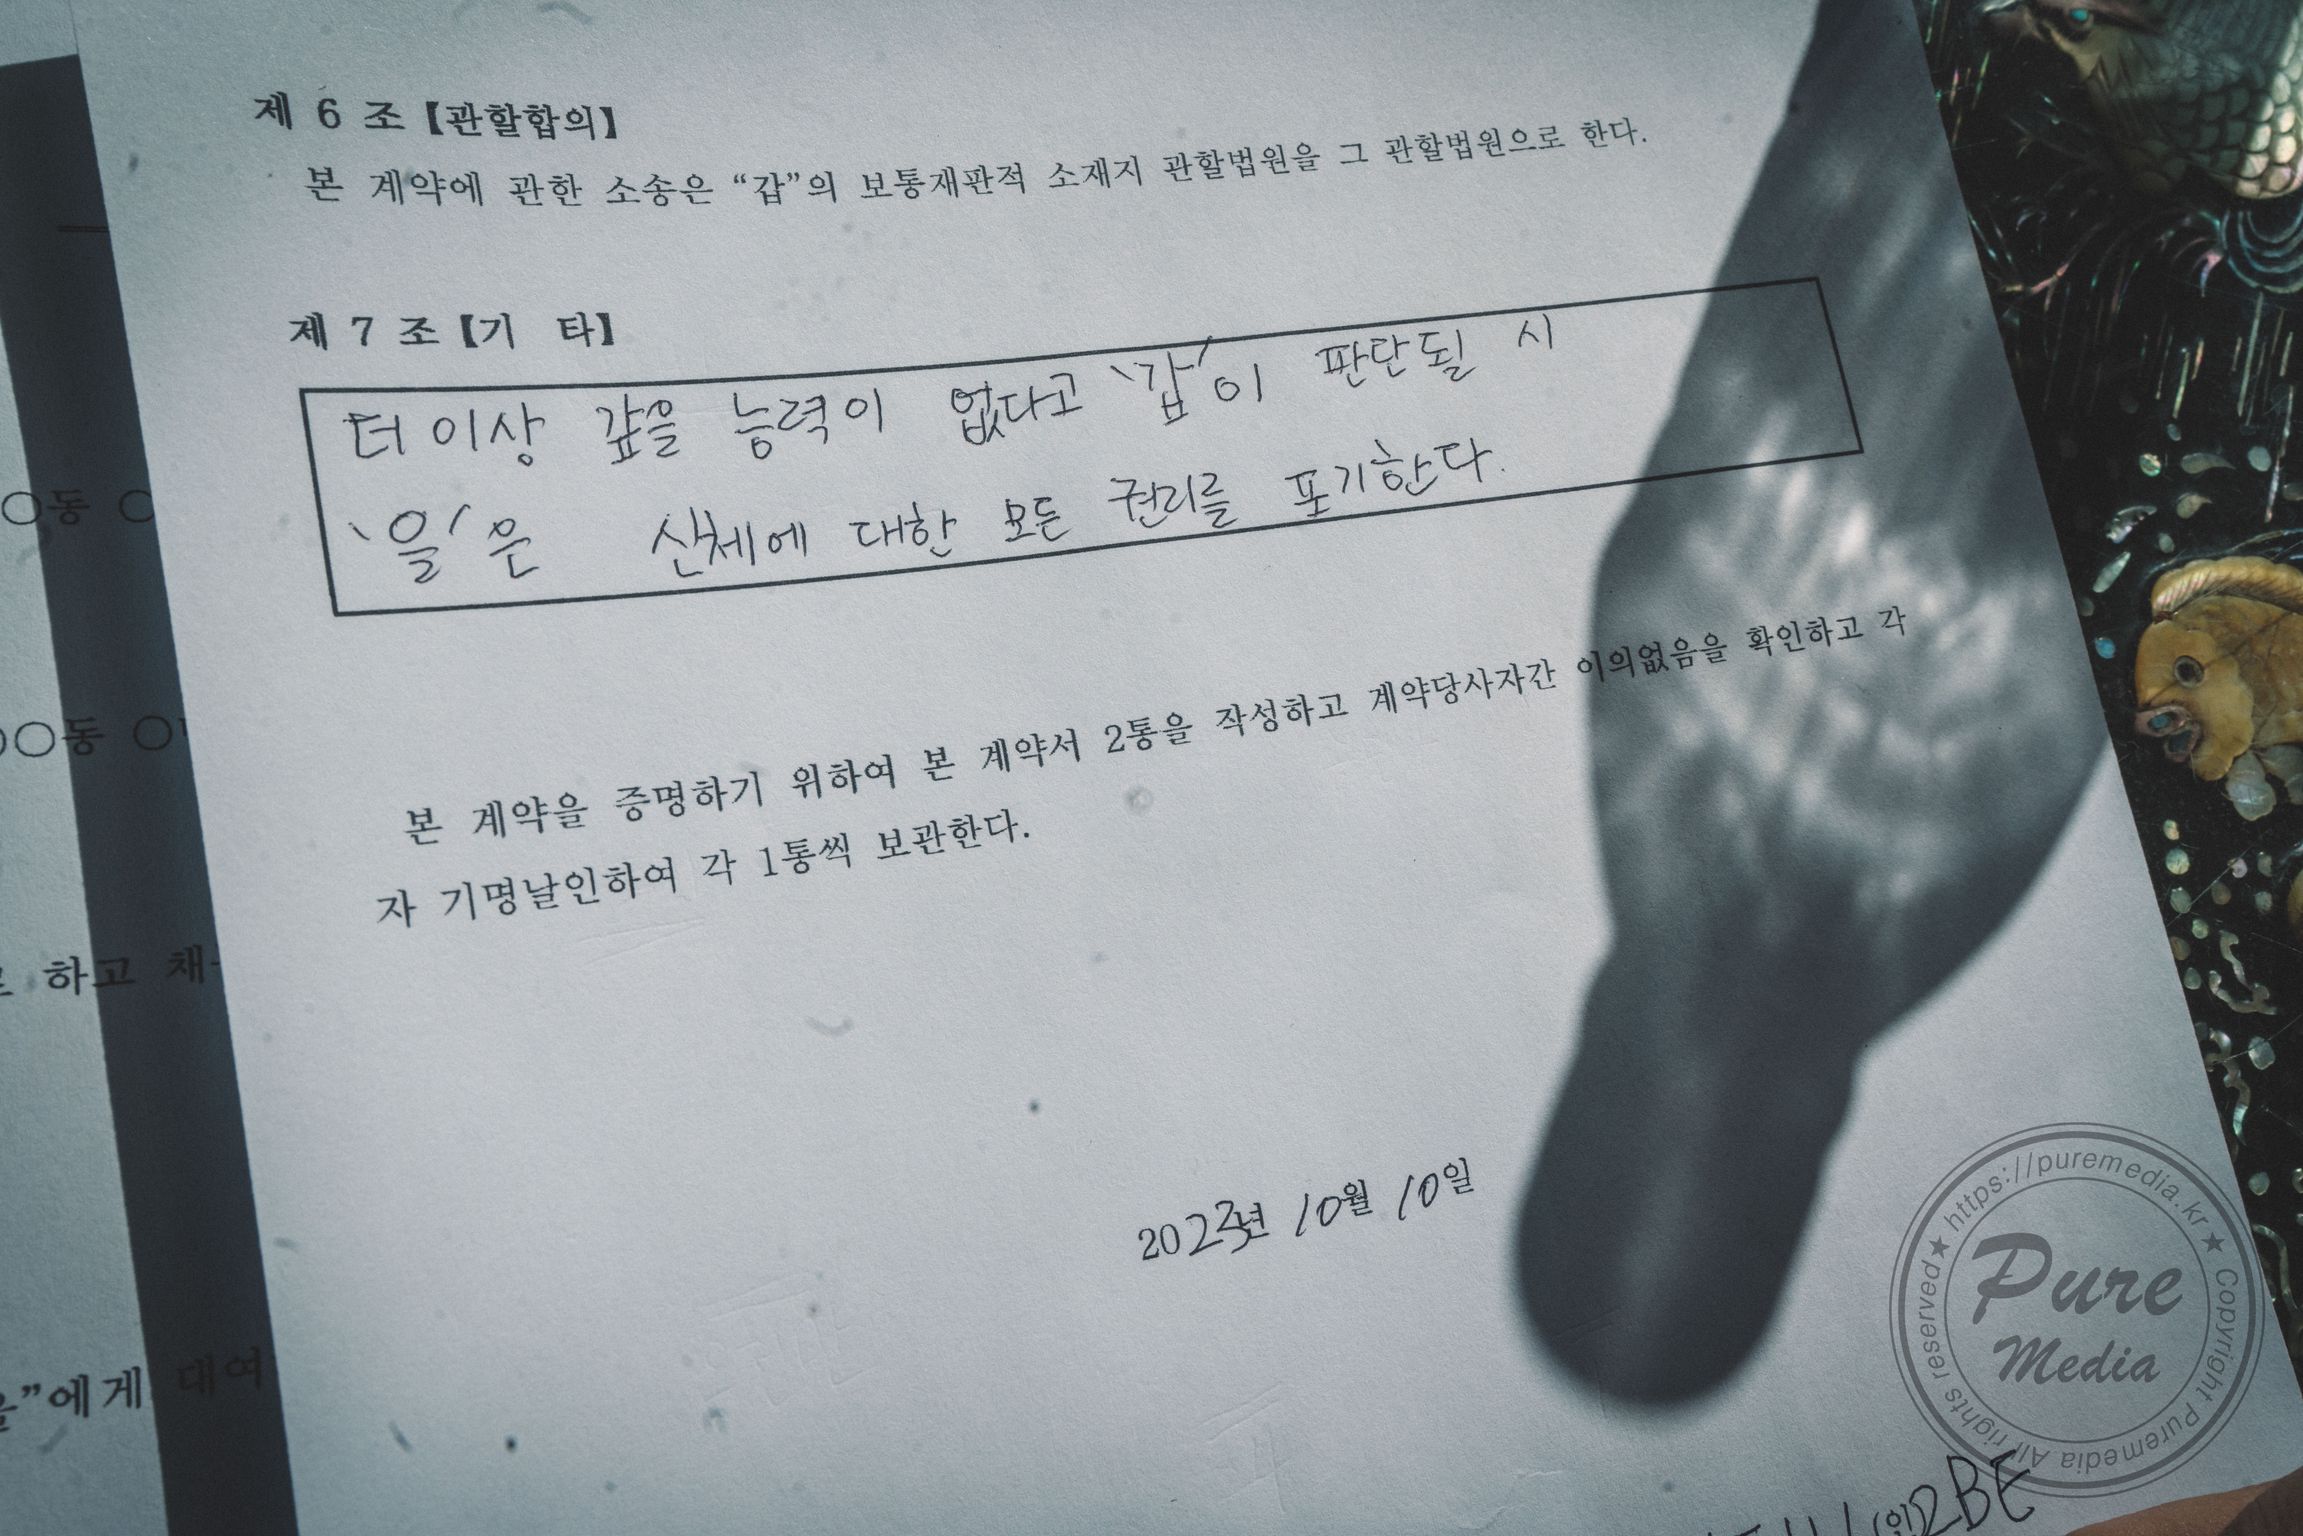 제 6 조【관할합의】
본 계약에 관한 소송은 “갑”의 보통재판적 소재지 관할법원을 그 관할법원으로 한다.
제 7 조【기 타】
더 이상 갚을 능력이 없다고 '갑'이 판단될 시
'을'은 신체에 대한 모든 권리를 포기한다.
본 계약을 증명하기 위하여 본 계약서 2통을 작성하고 계약당사자간 이의없음을 확인하고 각
자 기명날인하여 각 1통씩 보관한다.
2023년 10월 10일
(인)2BE
○동 ○
○동 ○
하고 채
”에게 대여
https://puremedia.kr ★ Copyright Puremedia All rights reserved ★
Pure
Media